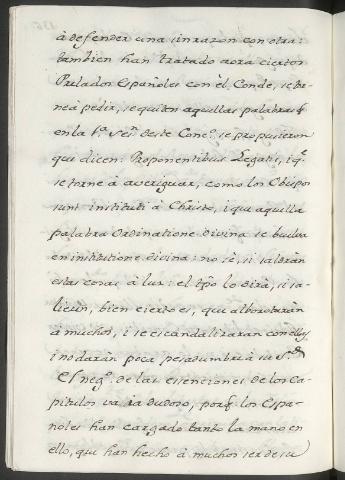 à defender una sinrazon con otra:
tambien han tratado aora ciertos
Prelados Españoles con el Conde, se tor-
ne à pedir, se quiten aquellas palabras q̃
en la 1ª. Sesⁿ. deste Concº. se propusieron
que dicen: Proponentibus Legatis, i q.ᵉ
se torne à averiguar, como los Obispos
sunt instituti à Christo, i que aquella
palabra Ordinatione divina se buelva
en institutione divina: no sè, si saldràn
estas cosas à luz: el tp̃o lo dirà, si sa-
lieren, bien cierto es, que alborotaràn
à muchos, i se escandalizaran con ellas,
i no daràn poca pesadumbre à su Sᵈ.
El negº. de las esenciones de los Ca-
pitulos và ia dudoso, porq̃ los Espa-
ñoles han cargado tanto la mano en
ello, que han hecho à muchos ser de su